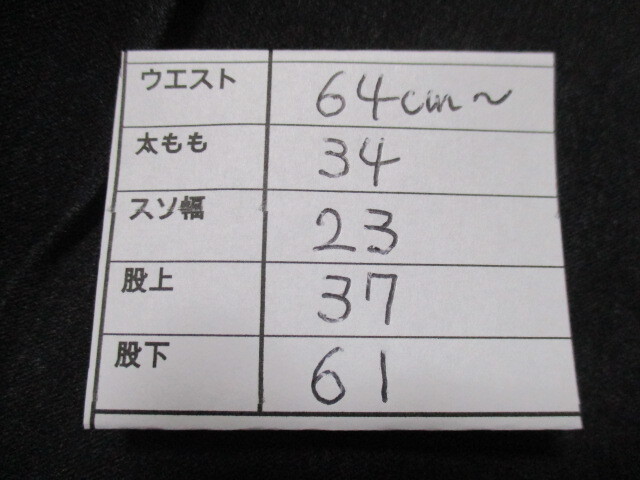 ウエスト 64cm～
太もも 34
スソ幅 23
股上 37
股下 61